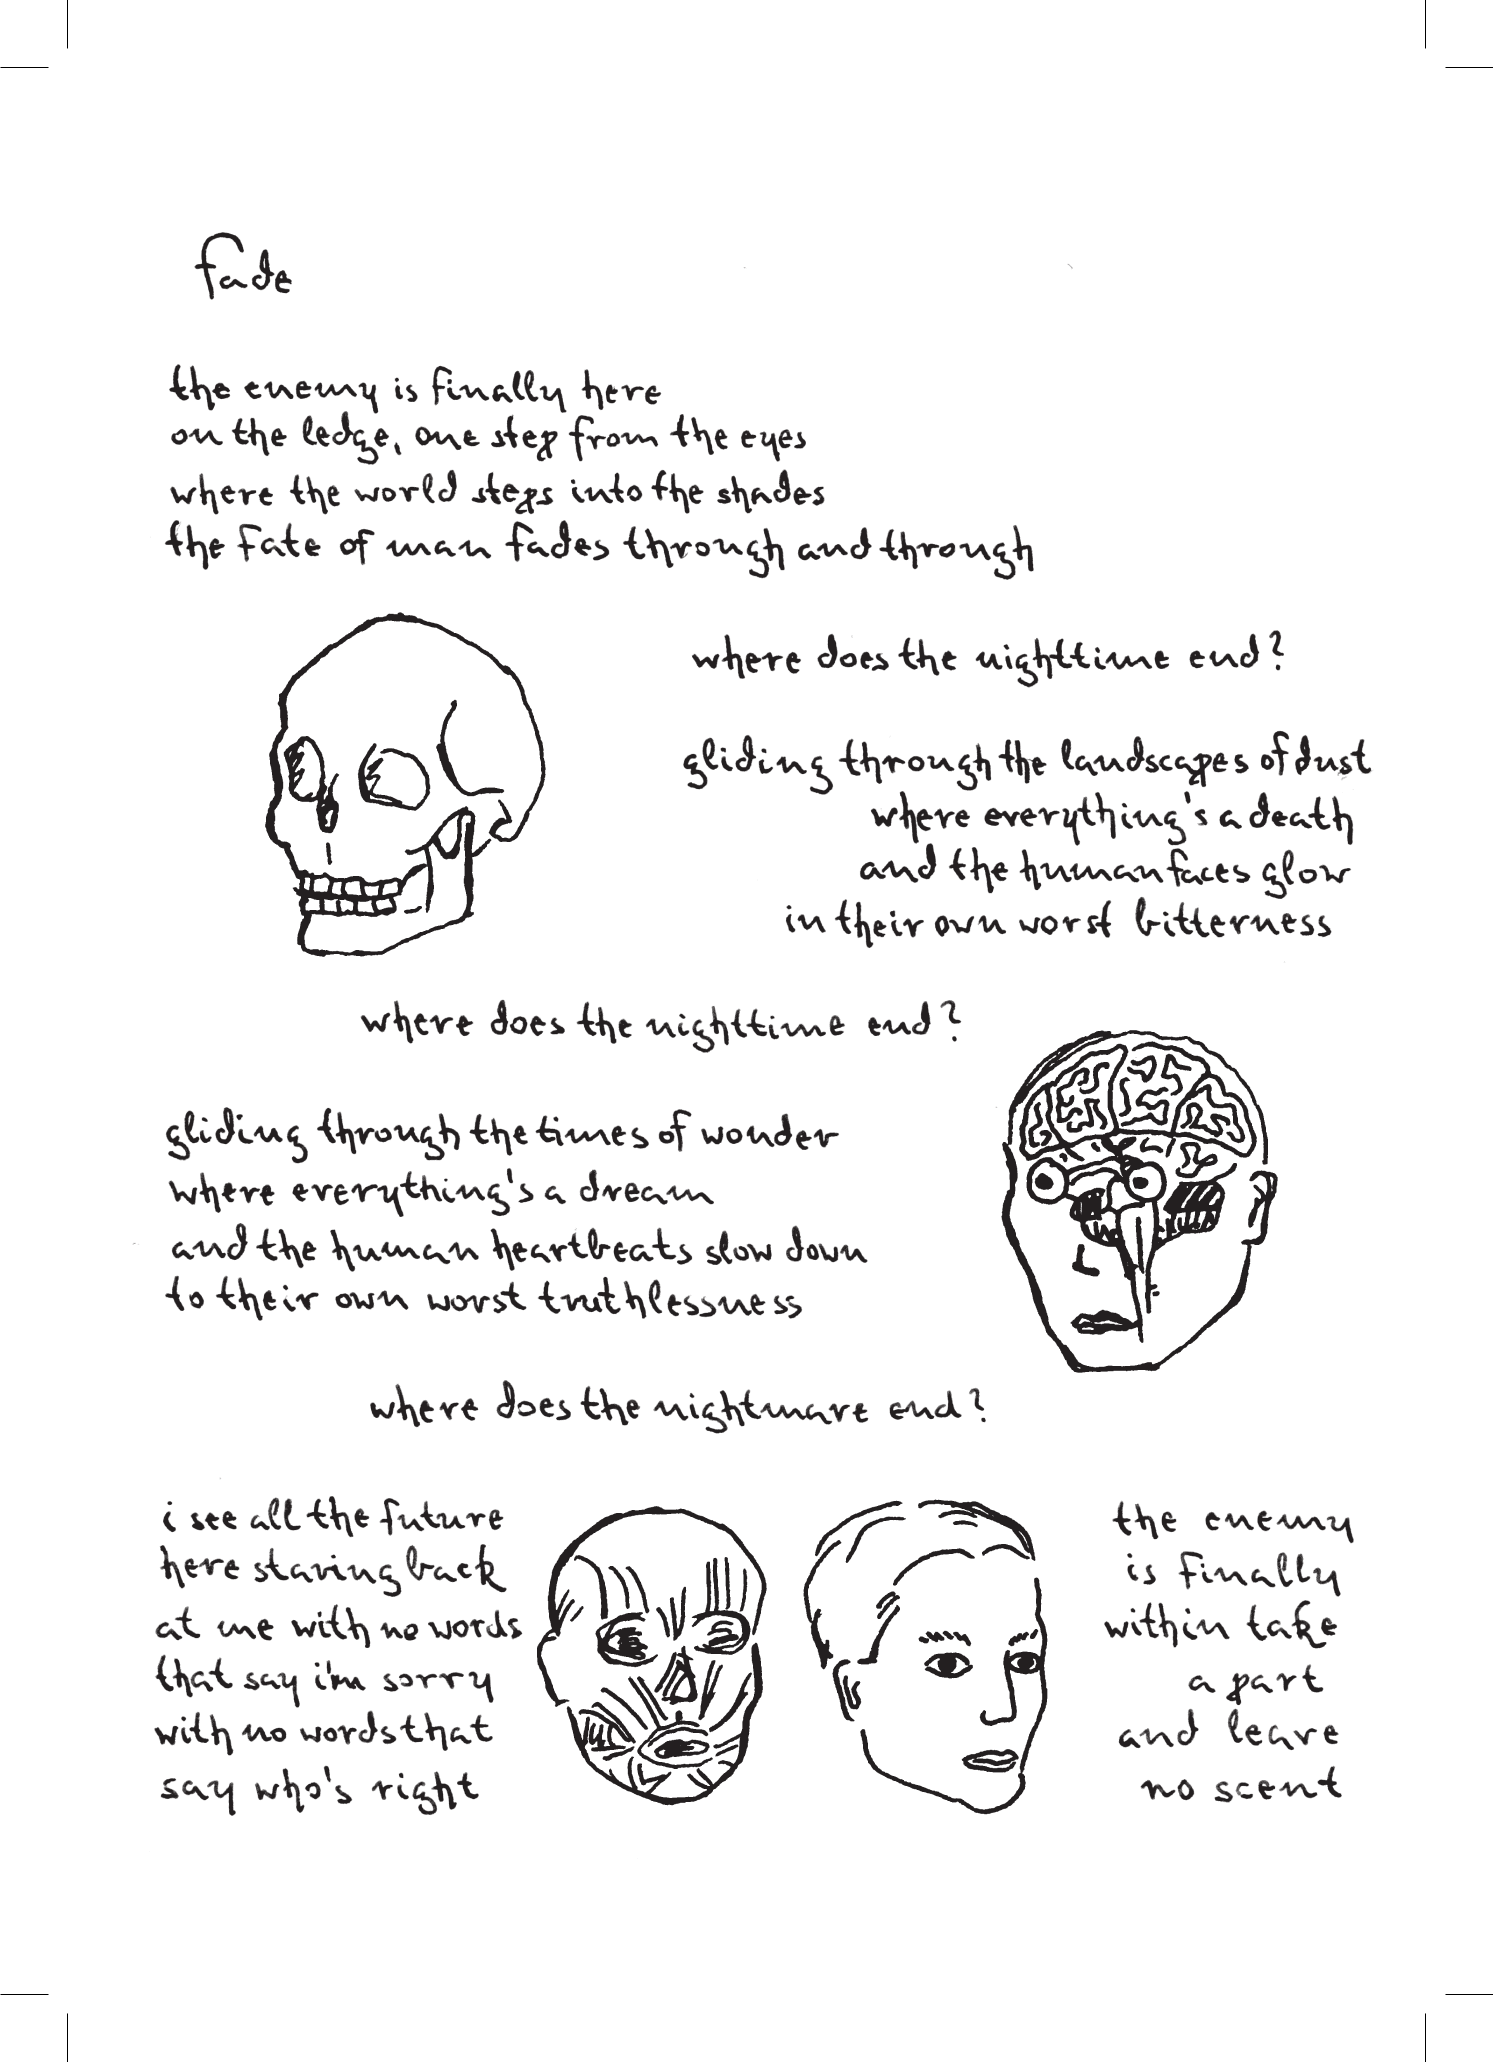 fade
the enemy is finally here
on the ledge, one step from the eyes
where the world steps into the shades
the fate of man fades through and through
where does the nighttime end?
gliding through the landscapes of dust
where everything's a death
and the human faces glow
in their own worst bitterness
where does the nighttime end?
gliding through the times of wonder
where everything's a dream
and the human heartbeats slow down
to their own worst truthlessness
where does the nightmare end?
i see all the future
here staring back
at me with no words
that say i'm sorry
with no words that
say who's right
the enemy
is finally
within take
a part
and leave
no scent